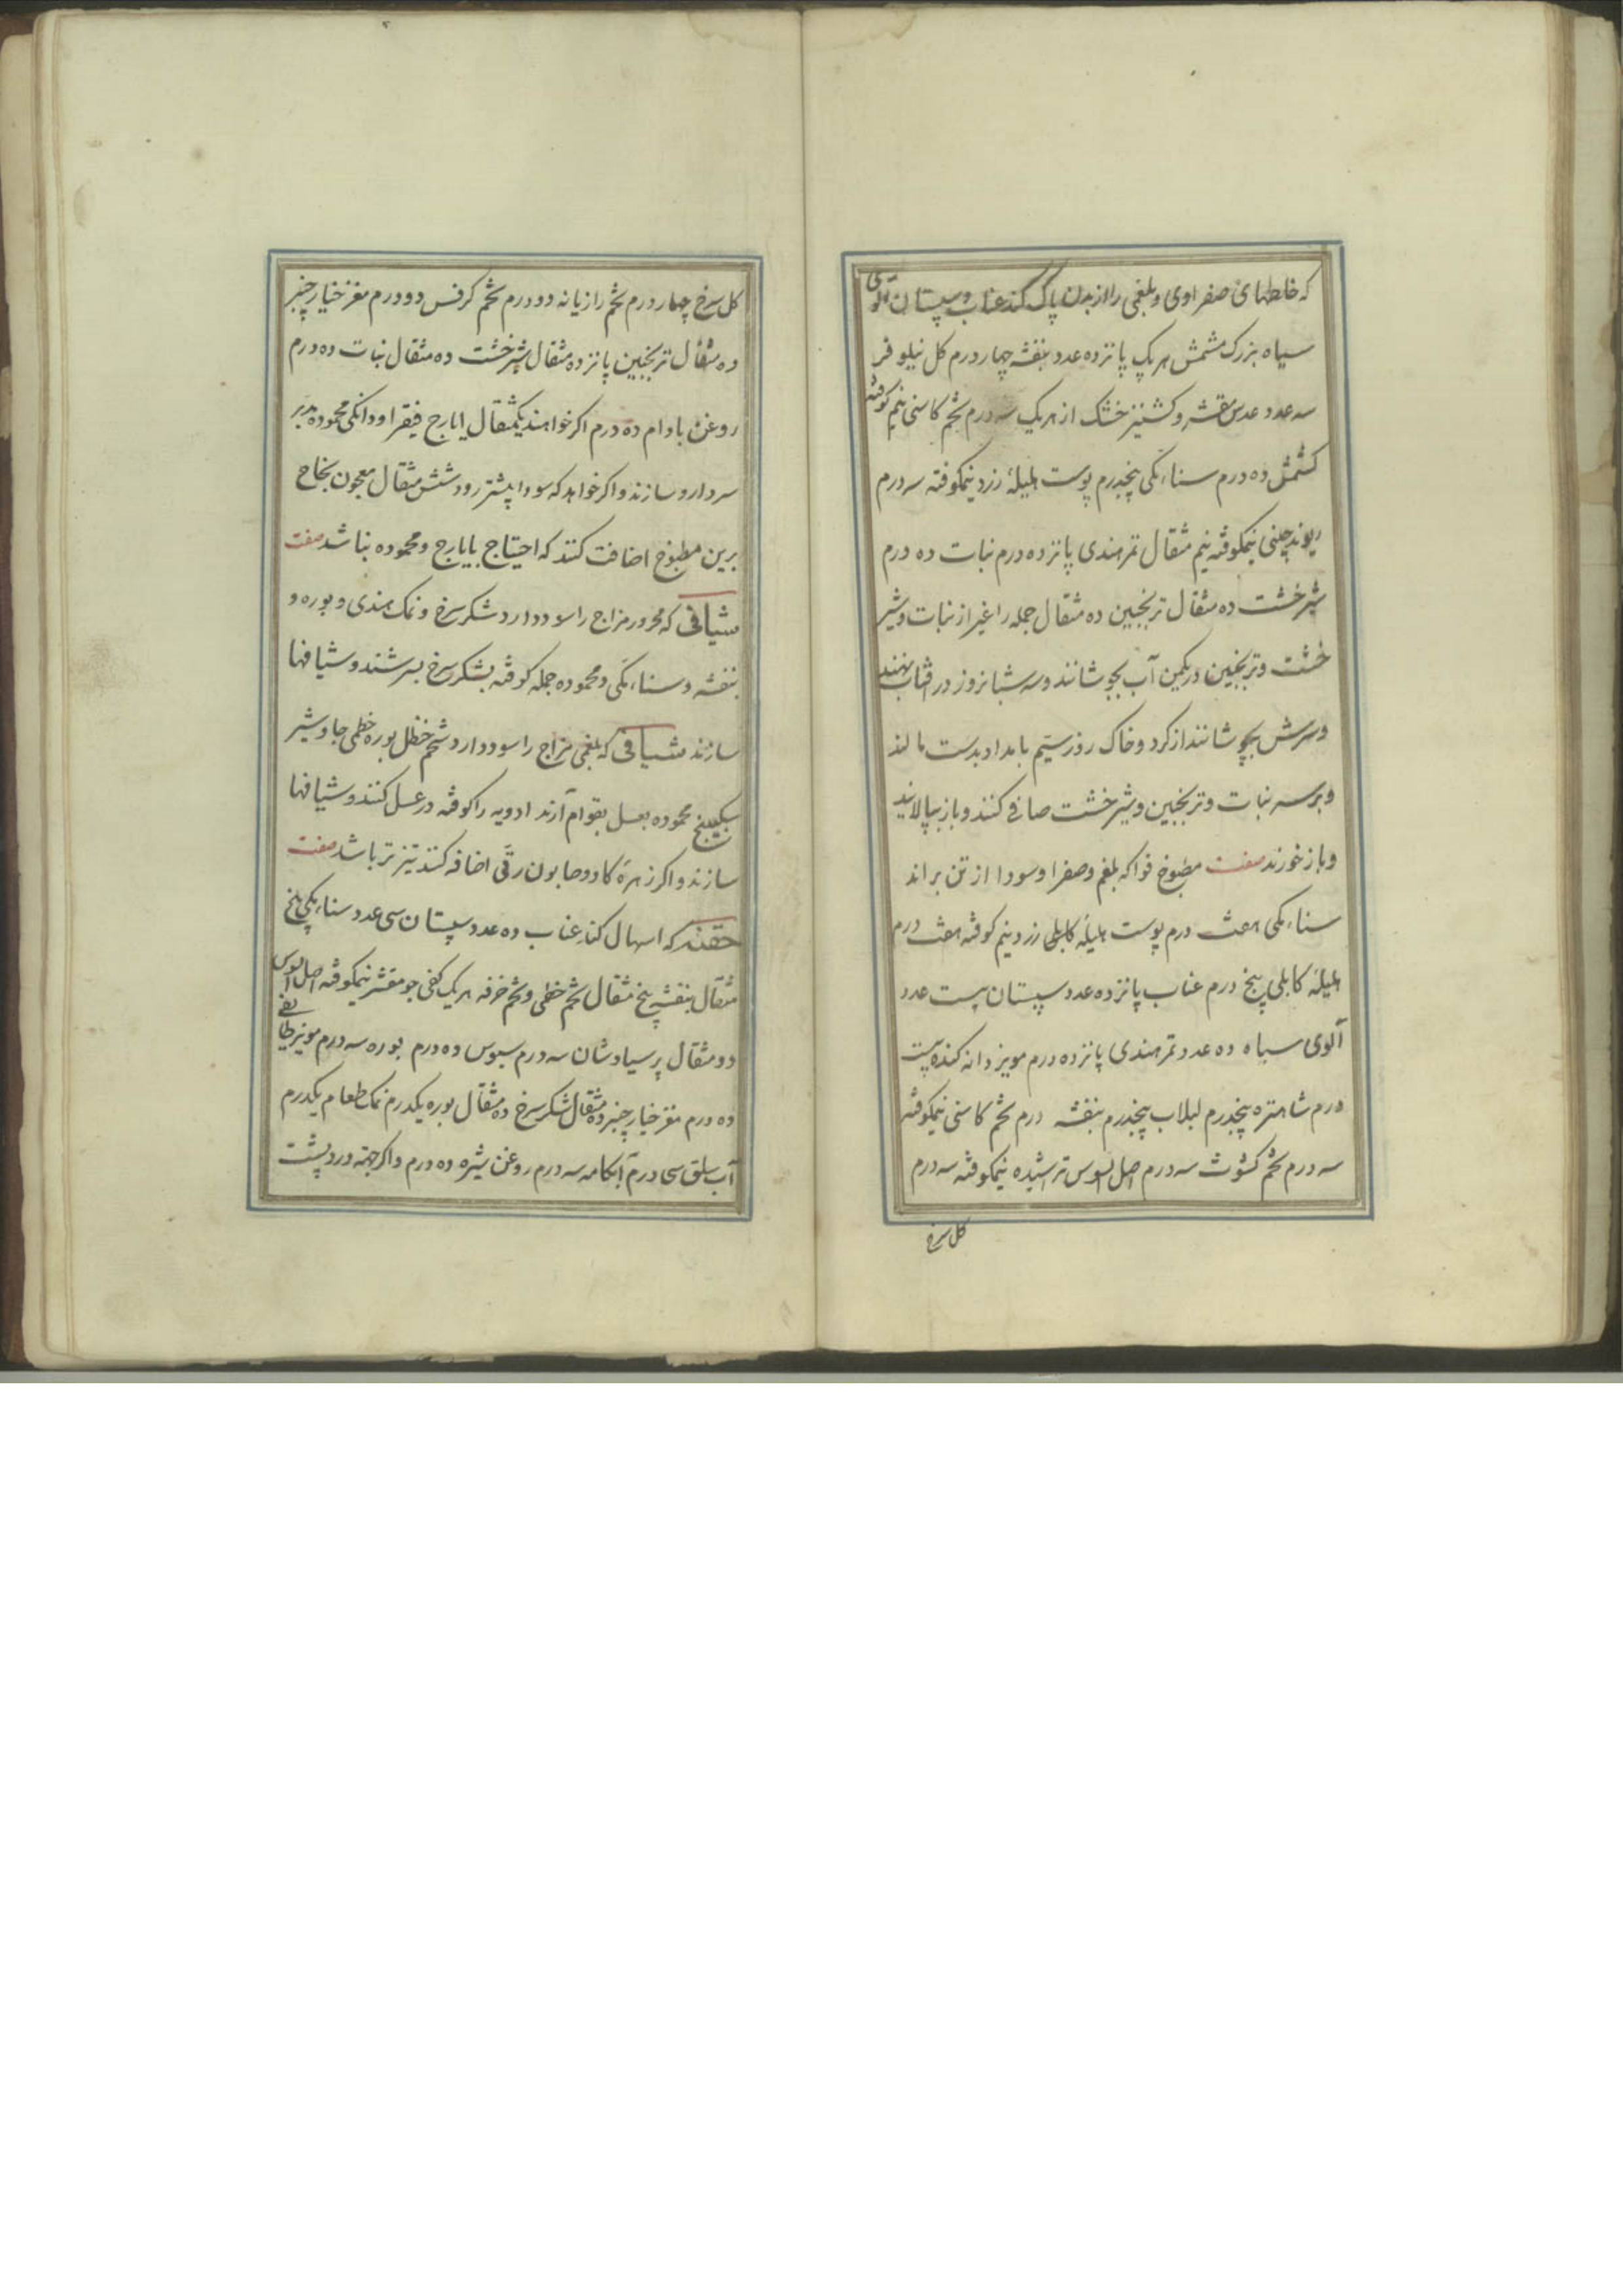 که خلطهای صفراوی و بلغمی را از بدن پاک کند عناب و سپستان آلوی
سیاه بزرک مشمش هر یک پانزده عدد بنفشه چهار درم کل نیلوفر
سه عدد عدس مقشر و کشنیز خشک از هر یک سه درم تخم کاسنی نیم کوفته
کشمش ده درم سناء مکی پنجدرم پوست هلیلهٔ زرد نیمکوفته سه درم
ریوند چینی نیمکوفته نیم مثقال تمر هندی پانزده درم نبات ده درم
شیرخشت ده مثقال ترنجبین ده مثقال جمله را غیر از نبات و شیر
خشت و ترنجبین در یکمن آب بجوشانند و سه شبانروز در افتاب نهند
و سرش بپوشانند از کرد و خاک روز سیّم بامداد بدست مالند
و بر سر نبات و ترنجبین و شیرخشت صافی کنند و باز بپالایند
و باز خورند صفت مطبوخ فواکه بلغم و صفرا و سودا از تن براند
سناء مکی هفت درم پوست هلیلهٔ کابلی زرد نیم کوفته هفت درم
هلیلهٔ کابلی پنج درم عناب پانزده عدد سپستان بیست عدد
آلوی سیاه ده عدد تمر هندی پانزده درم مویز دانه کنده بیست
درم شاهتره پنجدرم لبلاب پنجدرم بنفشه درم تخم کاسنی نیمکوفته
سه درم تخم کشوث سه درم اصل السوس تراشیده نیمکوفته سه درم
کل سرخ
کل سرخ چهار درم تخم رازیانه دو درم تخم کرفس دو درم مغز خیار چنبر
ده مثقال ترنجبین پانزده مثقال شیرخشت ده مثقال نبات ده درم
روغن بادام ده درم اکر خواهند یکمثقال ایارج فیقرا و دانکی محموده مدبر
سر دارو سازند و اکر خواهد که سودا بیشتر رود شش مثقال معجون نجاح
برین مطبوخ اضافت کنند که احتیاج بایارج و محموده نباشد صفت
شیافی که محرور مزاج را سود دارد شکر سرخ و نمک هندی و بوره و
بنفشه و سناء مکی و محموده جمله کوفته بشکر سرخ بسرشند و شیافها
سازند شیافی که بلغمی مزاج را سود دارد شحم حنظل بوره خطمی جاوشیر
سکبینج محموده بعسل بقوام آرند ادویه را کوفته در عسل کنند و شیافها
سازند و اکر زهرهٔ کاو و صابون رقّی اضافه کنند تیزتر باشد صفت
حقنه که اسهال کند عناب ده عدد سپستان سی عدد سناء مکی پنج
مثقال بنفشه پنج مثقال تخم خطمی و تخم خرفه هر یک کفی جو مقشر نیمکوفته اصل السوس
دو مثقال پرسیاوشان سه درم سبوس ده درم بوره سه درم مویز طایفی
ده درم مغز خیار چنبر ده مثقال شکر سرخ ده مثقال بوره یکدرم نمک طعام یکدرم
آب سلق سی درم آبکامه سه درم روغن شیره ده درم و اکر جهة درد پشت